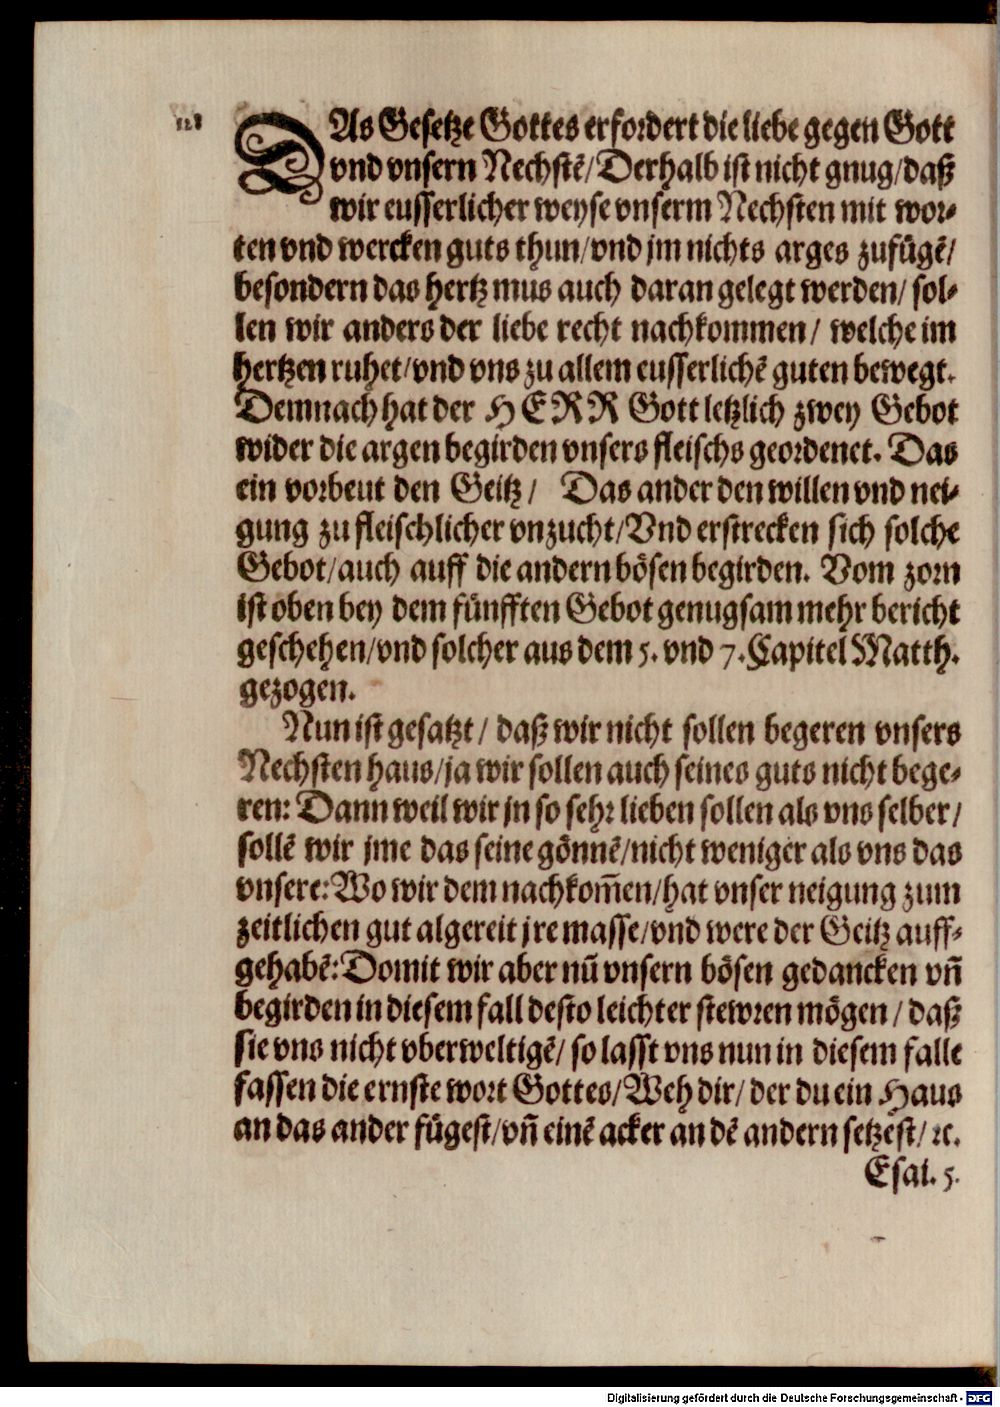 DAs Gesetze Gottes erfordert die liebe gegen Gott
vnd vnsern Nechstē/Derhalb ist nicht gnug/daß
wir eusserlicher weyse vnserm Nechsten mit wor-
ten vnd wercken guts thun/vnd jm nichts arges zufügē/
besondern das hertz mus auch daran gelegt werden/ sol-
len wir anders der liebe recht nachkommen/ welche im
hertzen ruhet/vnd vns zu allem eusserlichē guten bewegt.
Demnach hat der HERR Gott letzlich zwey Gebot
wider die argen begirden vnsers fleischs geordenet. Das
ein vorbeut den Geitz/ Das ander den willen vnd nei-
gung zu fleischlicher vnzucht/Vnd erstrecken sich solche
Gebot/auch auff die andern bösen begirden. Vom zorn
ist oben bey dem fünfften Gebot genugsam mehr bericht
geschehen/vnd solcher aus dem 5. vnd 7. Capitel Matth.
gezogen.
Nun ist gesatzt/ daß wir nicht sollen begeren vnsers
Nechsten haus/ja wir sollen auch seines guts nicht bege-
ren: Dann weil wir jn so sehr lieben sollen als vns selber/
sollē wir jme das seine gönnē/nicht weniger als vns das
vnsere: Wo wir dem nachkom̄en/hat vnser neigung zum
zeitlichen gut algereit jre masse/vnd were der Geitz auff-
gehabē: Domit wir aber nū vnsern bösen gedancken vn̄
begirden in diesem fall desto leichter stewren mögen/ daß
sie vns nicht vberweltigē/ so lasst vns nun in diesem falle
fassen die ernste wort Gottes/Weh dir/ der du ein Haus
an das ander fügest/vn̄ einē acker an dē andern setzest/ ꝛc.
Esai. 5.
Digitalisierung gefördert durch die Deutsche Forschungsgemeinschaft - DFG